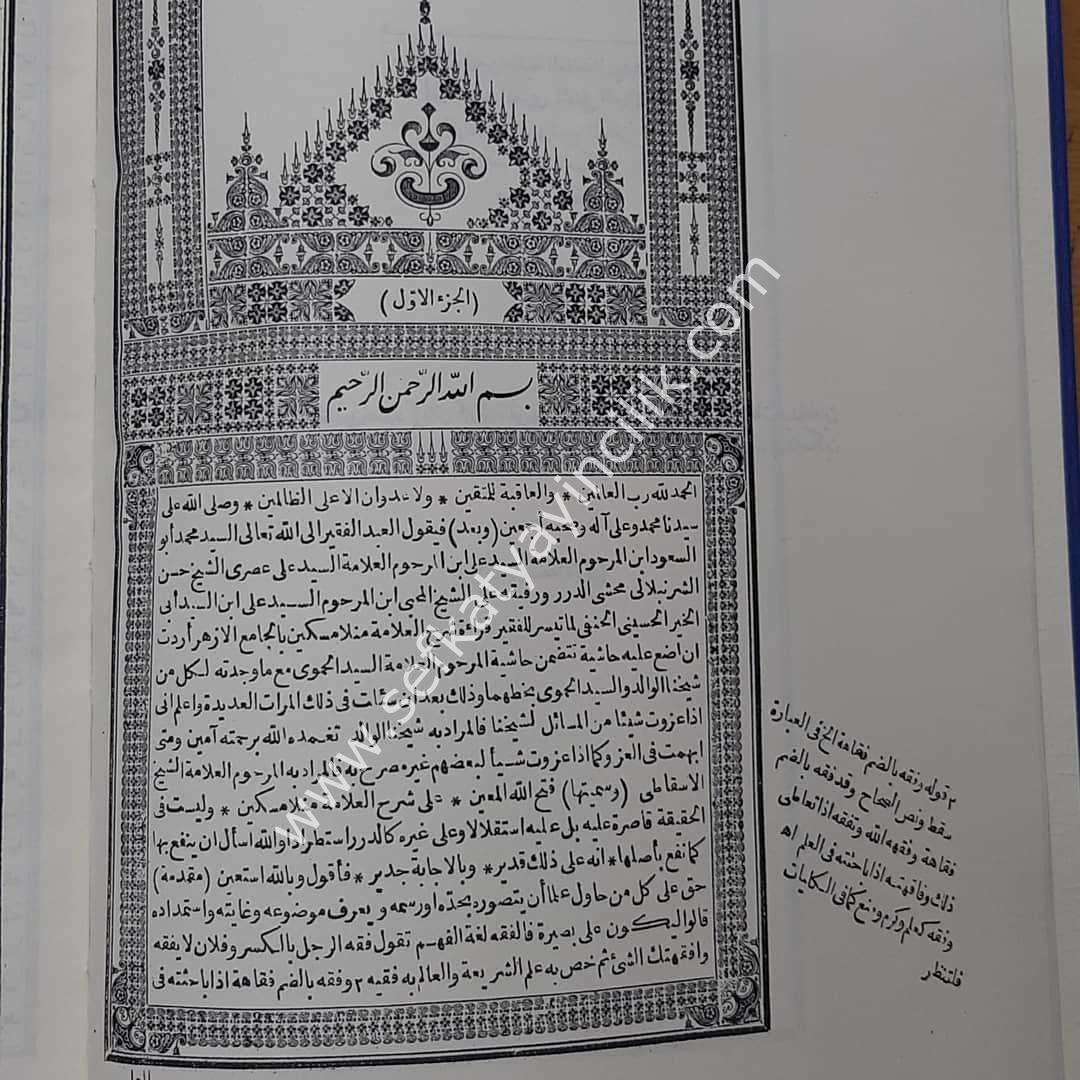 (الجزء الاوّل)
بسم الله الرّحمن الرّحيم
الحمد لله رب العالمين * والعاقبة للمتقين * ولا عدوان الا على الظالمين * وصلى الله على
سيدنا محمد وعلى آله وصحبه أجمعين (وبعد) فيقول العبد الفقير الى الله تعالى السيد محمد أبو
السعود ابن المرحوم العلامة السيد على ابن المرحوم العلامة السيد على عصرى الشيخ حسن
الشرنبلالى محشى الدرر ورفيقه على الشيخ المحبى ابن المرحوم السيد على ابن السيد أبى
الخير الحسينى الحنفى لما تيسر للفقير قراءة شرح العلامة منلا مسكين بالجامع الازهر أردت
ان اضع عليه حاشية تتضمن حاشية المرحوم العلامة السيد الحموى مع ما وجدته لكل من
شيخنا الوالد والسيد الحموى بخطهما وذلك بعد ان سئلت فى ذلك المرات العديدة واعلم انى
اذا عزوت شيئا من المسائل لشيخنا فالمراد به شيخنا الوالد تغمده الله برحمته آمين ومتى
ابهمت فى العزو كما اذا عزوت شيأ لبعضهم غير مصرح به فالمراد به المرحوم العلامة الشيخ
الاسقاطى (وسميتها) فتح الله المعين * على شرح العلامة منلا مسكين * وليست فى
الحقيقة قاصرة عليه بل عليه استقلالا وعلى غيره كالدرر استطرادا والله أسأل ان ينفع بها
كما نفع بأصلها * انه على ذلك قدير * وبالاجابة جدير * فأقول وبالله استعين (مقدمة)
حق على كل من حاول علما أن يتصوره بحده أو رسمه ويعرف موضوعه وغايته واستمداده
قالوا ليكون على بصيرة فالفقه لغة الفهم تقول فقه الرجل بالكسر وفلان لا يفقه
وافقهتك الشئ ثم خص به علم الشريعة والعالم به فقيه ٢ وفقه بالضم فقاهة اذا باحثته فى
العلم
٢ قوله وفقه بالضم فقاهة الخ فى العبارة
سقط ونص الصحاح وقد فقه بالضم
فقاهة وفقهه الله وتفقه اذا تعاطى
ذلك وفاقهته اذا باحثته فى العلم اه
وفقه كعلم وكرم ومنع كما فى الكليات
فلتنظر
www.sefkatyayincilik.com